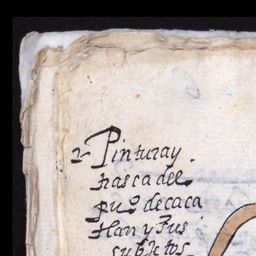 2 Pinturay
trasca del
puo de caca
tlan y sus
subjetos